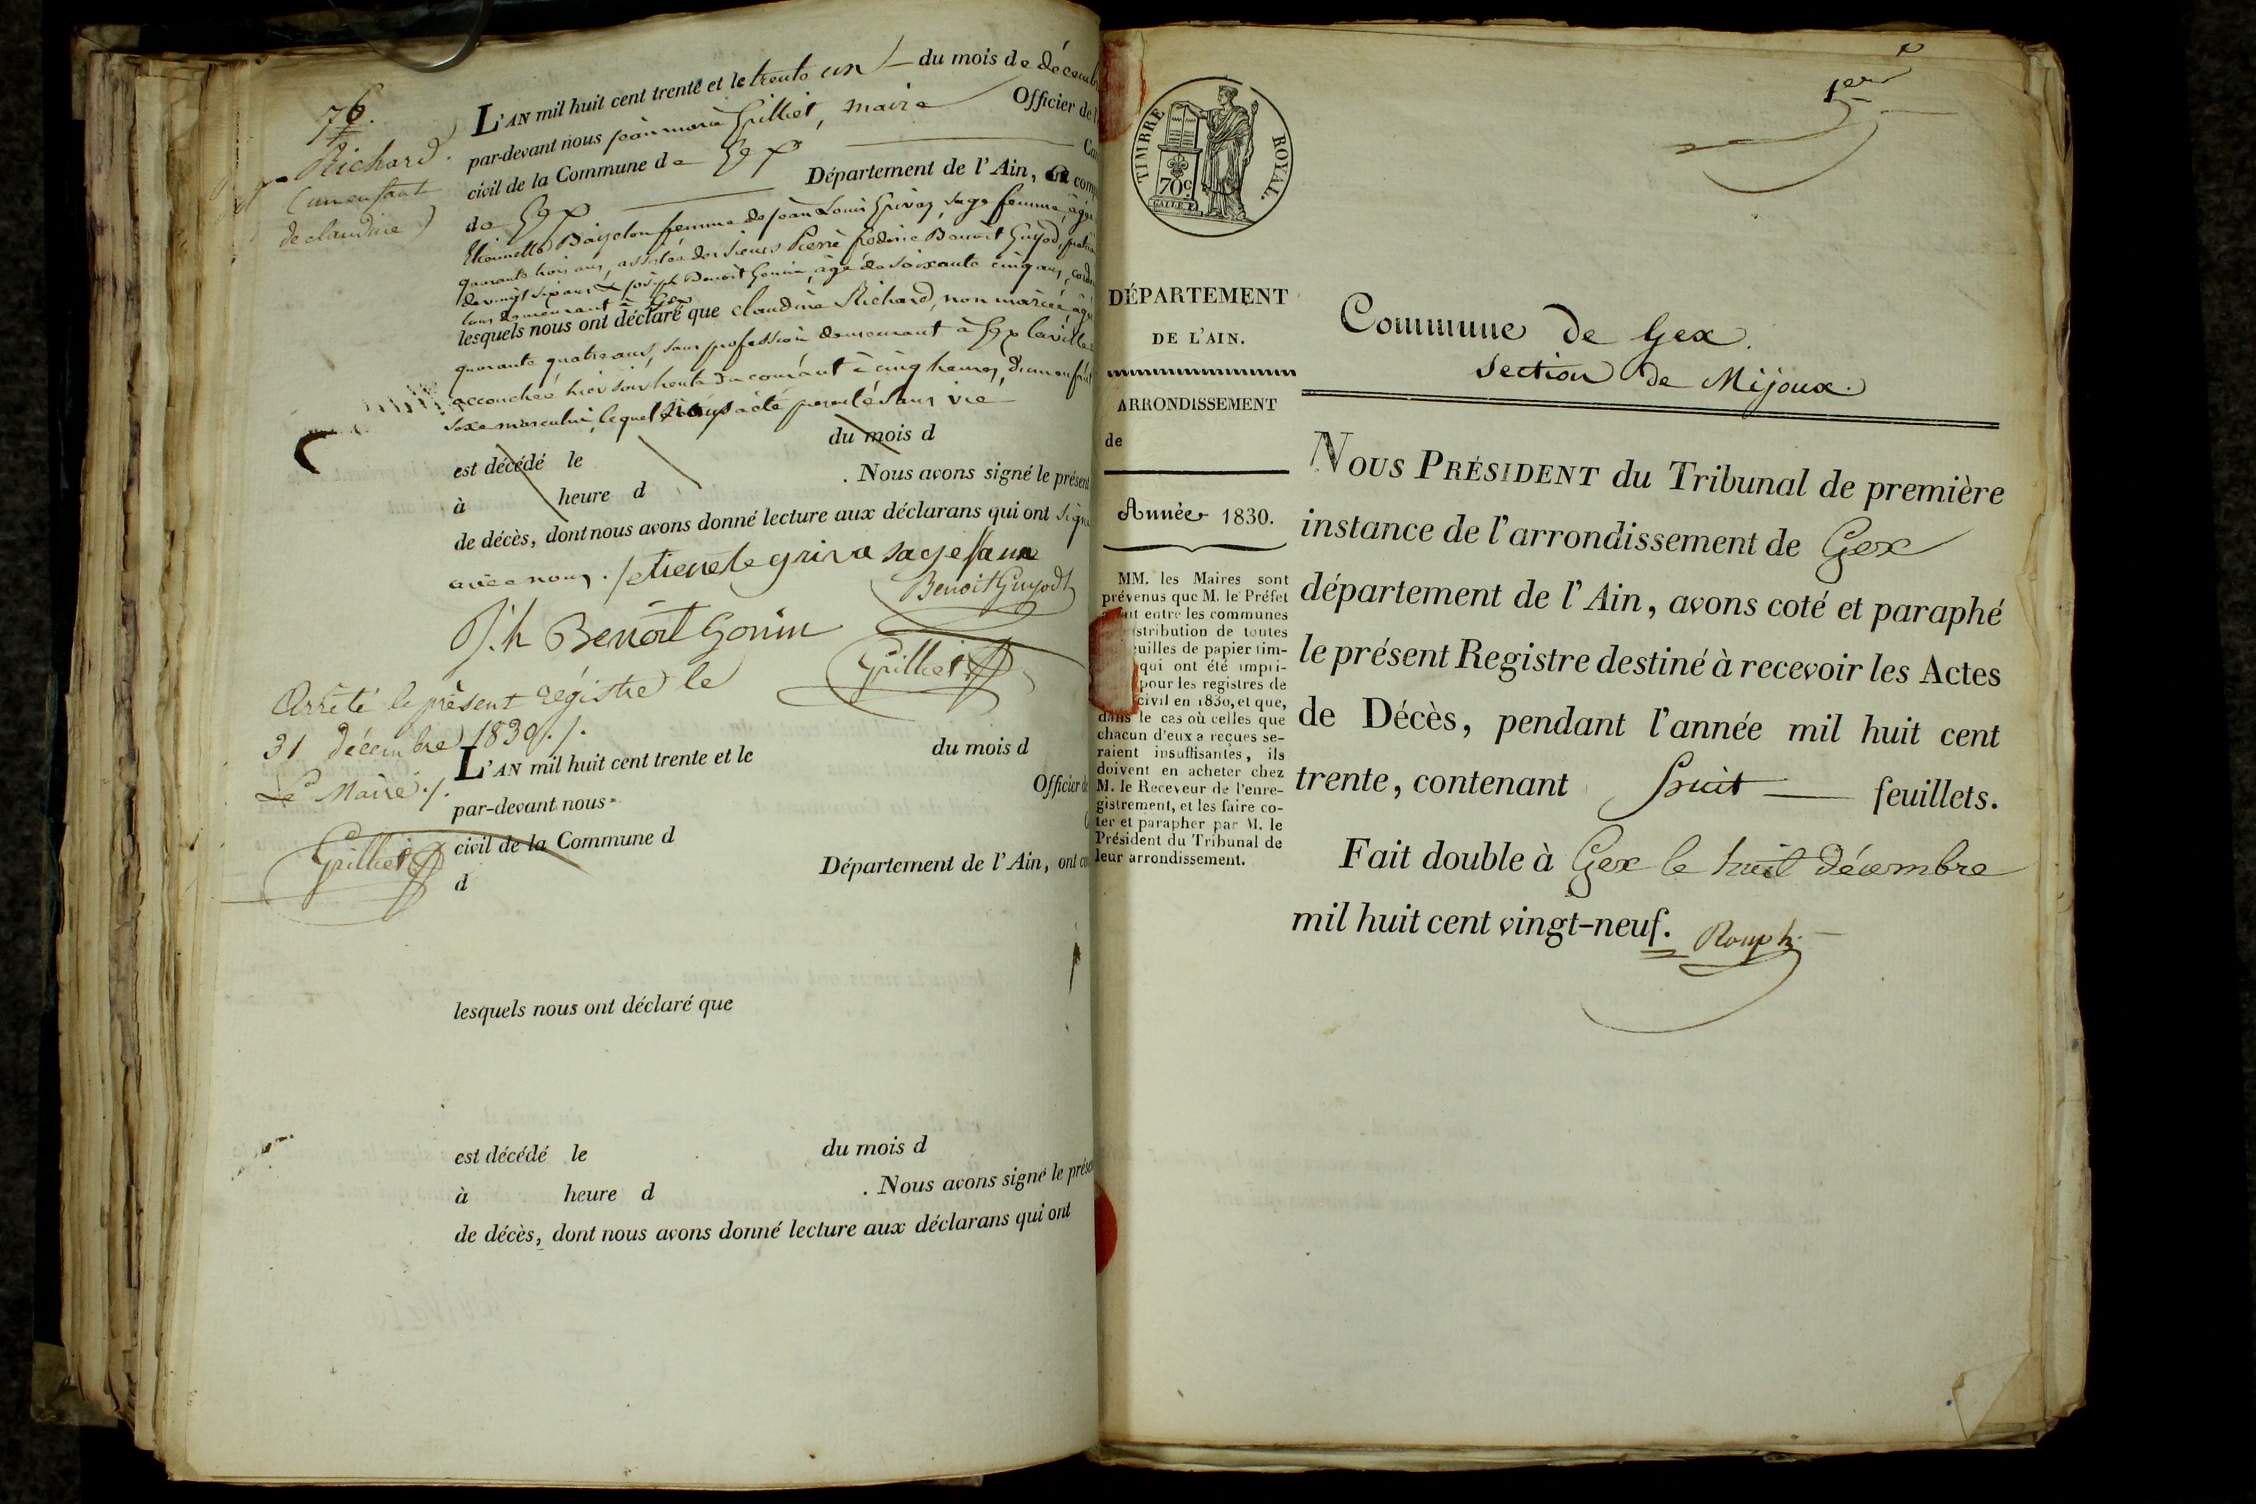 76.
Richard.
(un enfant
de claudine)
L'AN mil huit cent trente et le trente un du mois de décemb
par-devant nous jean marie Grilliet, maire Officier de l'
civil de la Commune de Gex Ca
de Gex Département de l'Ain, comp
femme de jean Louis Grivaz, sage femme, âgée
quarante trois ans, assistée des sieurs Pierre fréderic Benoît Guyod,
de vingt six ans & joseph Benoit Gonin, âgé de soixante cinq ans, cord
tous demeurant à Gex
lesquels nous ont déclaré que claudine Richard, non mariée, âg
quarante quatre ans, sans profession demeurant à Gex la ville
accouchée hier soir trente du courant à cinq heures, d'un enfant
sexe masculin, lequel nous a été présenté sans vie
est décédé le du mois d
à heure d . Nous avons signé le présent
de décès, dont nous avons donné lecture aux déclarans qui ont signé
avec nous. /.
etienete griva sage fame
Benoit Guyod
J.h Benoit Gonin
Grilliet
Arrêté le présent régistre le
31 décembre 1830 ./.
Le Maire ./.
Grilliet
L'AN mil huit cent trente et le du mois d
par-devant nous Officier de
civil de la Commune d
d Département de l'Ain, ont co
lesquels nous ont déclaré que
est décédé le du mois d
à heure d . Nous avons signé le prése
de décès, dont nous avons donné lecture aux déclarans qui ont
1er
TIMBRE ROYAL.
70c
DÉPARTEMENT
DE L'AIN.
ARRONDISSEMENT
de
Année 1830.
MM. les Maires sont
prévenus que M. le Préfet
entre les communes
stribution de toutes
uilles de papier tim-
qui ont été impri-
pour les registres de
civil en 1830, et que,
dans le cas où celles que
chacun d'eux a reçues se-
raient insuffisantes, ils
doivent en acheter chez
M. le Receveur de l'enre-
gistrement, et les faire co-
ter et parapher par M. le
Président du Tribunal de
leur arrondissement.
Commune de Gex.
Section de Mijoux.
NOUS PRÉSIDENT du Tribunal de première
instance de l'arrondissement de Gex
département de l'Ain, avons coté et paraphé
le présent Registre destiné à recevoir les Actes
de Décès, pendant l'année mil huit cent
trente, contenant huit feuillets.
Fait double à Gex le huit décembre
mil huit cent vingt-neuf.
Rouph